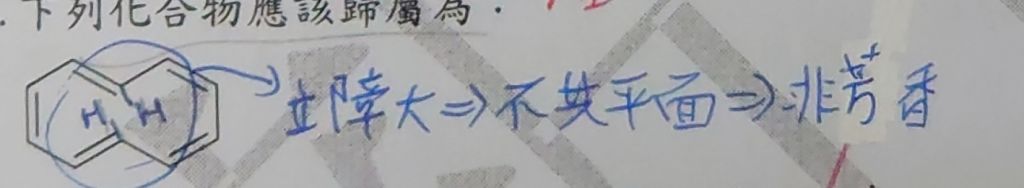 .下列化合物應該歸屬為.
H H 立障大⇒不共平面⇒非芳香